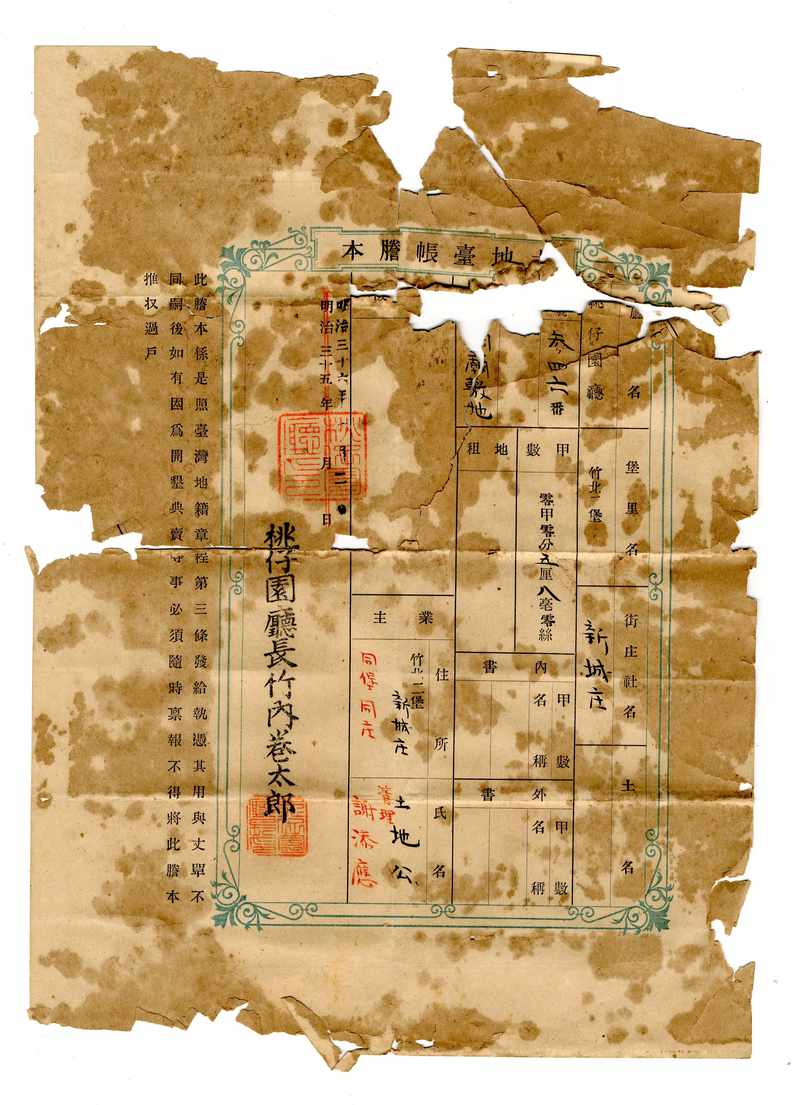 地臺帳謄本
廳名
桃仔園廳
堡里名
竹北二堡
街庄社名
新城庄
土名
叁四六番
甲數
零甲零分五厘八毫零絲
地租
廟敷地
內書
名稱
甲數
外書
名稱
甲數
業主
住所
竹北二堡
新城庄
同堡同庄
氏名
土地公
管理
謝添應
明治三十六年
月二
明治三十五年 月 日
桃仔園廳長竹內卷太郎
此謄本係是照臺灣地籍章程第三條發給執憑其用與丈單不
同嗣後如有因爲開墾典賣等事必須隨時禀報不得將此謄本
推収過戶